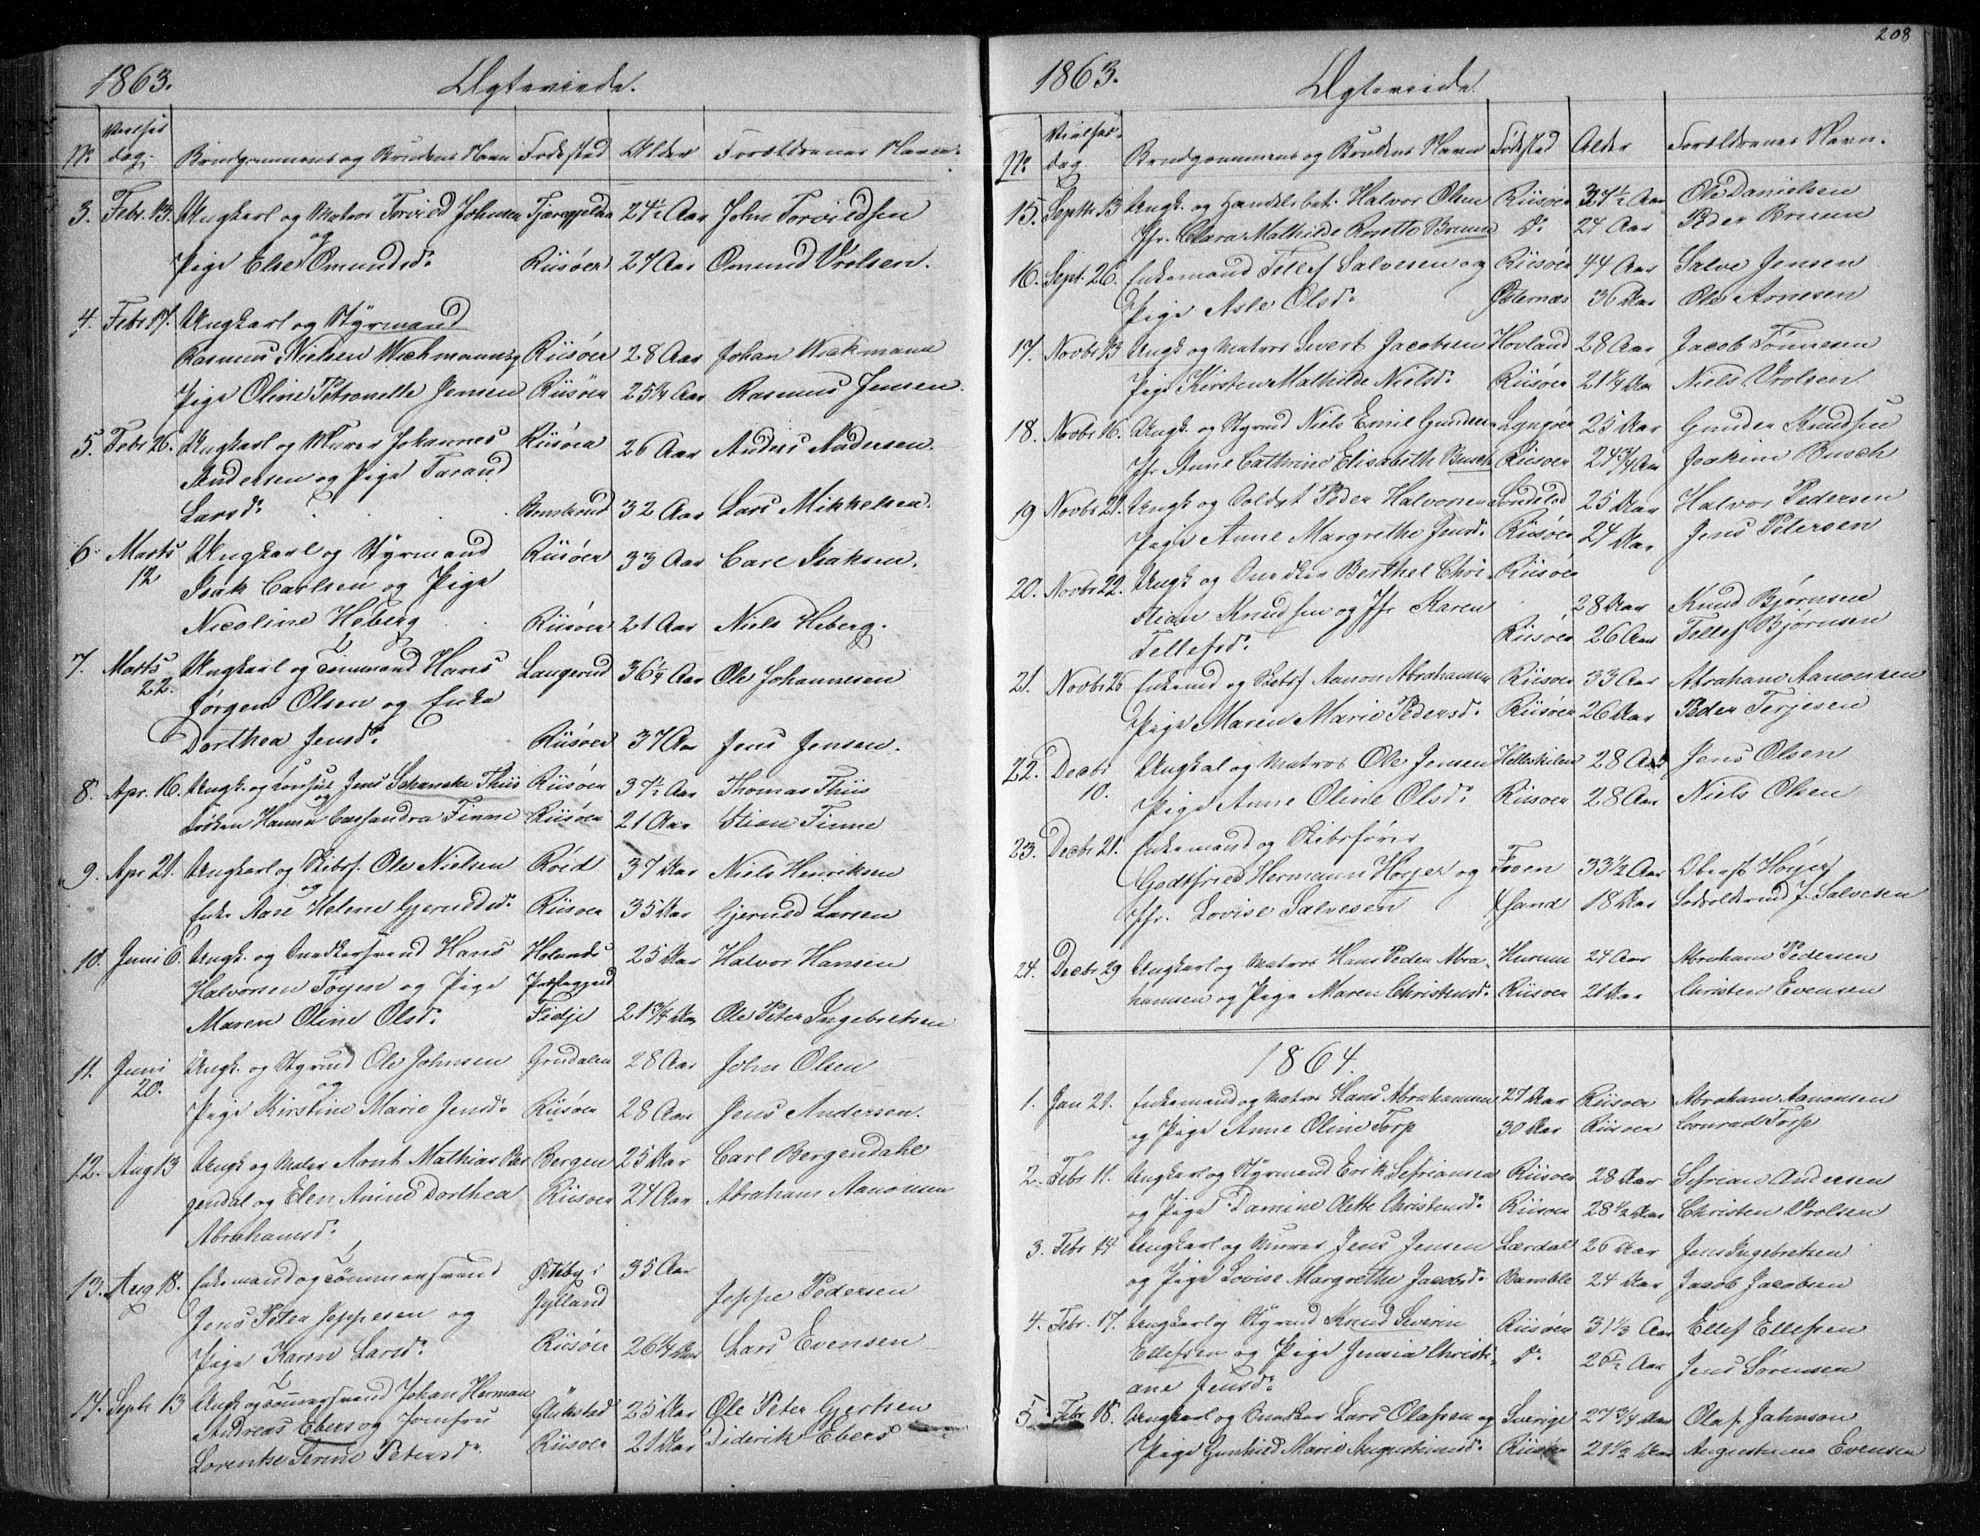 1863. Ægteviede.
No Vielses dag. Brudgommens og Brudens Navn Fødested Alder Forældrenes Navn.
3. Febr. 13. Ungkarl og Matros Torvild Johnsen 24½ Aar John Torvildsen
og
Pige Else Omundsd. Riisøer 27 Aar Omund Vrolsen.
4. Febr 17. Ungkarl og Styrmand
Rasmus Nielsen Wichmann og Riisøer 28 Aar Johan Wichmann
Pige Oline Petronelle Jensen Riisøer 25¼ Aar Rasmus Jensen.
5. Febr 26. Ungkarl og Murer Johannes Riisøer 26 Aar Anders Andersen.
Andersen og Pige Taran
Larsd. 32 Aar Lars Mikkelsen.
6. Marts 12 Ungkarl og Styrmand Riisøer 33 Aar Carl Isaksen.
Isak Carlsen og Pige
Nicoline Heberg Riisøer 21 Aar Niels Heberg.
7. Marts 22. Ungkarl og Tømmermand Hans Langerud 36¼ Aar Ole Johannesen
Jørgen Olsen og Enke
Dorthea Jensd. Riisøer 37 Aar Jens Jensen.
8. Apr. 16. Ungk. og Consul Jens Schancke Thiis Riisøer 37½ Aar Thomas Thiis
og
Frøken Hanna Cassandra Finne Riisøer 21 Aar Stian Finne
9. Apr 21. Ungkarl og Skibsf. Ole Nielsen Røid 37 Aar Niels Henriksen
og
Enke Aase Helene Gjeruldsd. Riisøer 35 Aar Gjeruld Larsen
10. Juni 6. Ungk. og Snedkersvend Hans Holands 25 Aar Halvor Hansen
Halvorsen Tøyen og Pige Præstegjeld
Maren Oline Olsd. Fidje 21¾ Aar Ole Peter Ingebretsen
11. Juni 20. Ungk. og Styrmd Ole Johnsen 28 Aar John Olsen
og
Pige Kirstine Marie Jensd. Riisøer 28 Aar Jens Andersen.
12. Aug 13 Ungk og Maler Arnt Mathias Ber Bergen 25 Aar Carl Bergendahl
gendal og Elen Dorthea Riisøer 24 Aar Abraham Aanonsen
Abrahamsd.
13. Aug 18. Enkemand og Tømmersvend i 35 Aar
Jens Peter Jeppesen og Jylland Jeppe Pedersen
Pige Karen Larsd. Riisøer 26¼ Aar Lars Evensen
14. Septr 13 Ungk og Tømmersvend Johan Herman
Andreas Ebers og Jomfru Glükstad 25 Aar Ole Peter Gjertsen
Lorentse Serine Petersd. Riisøer 21 Aar Diderik Ebers
208
1863. Ægteviede
No. Vielses- dag Brudgommens og Brudens Navn Fødested Alder Forældrenes Navn.
15. Septr. 13 Ungk. og Handelsbet. Halvor Olsen Riisøer Aar Ole Danielsen
Jfr. Clara Mathilde Rosette Bruun do 24 Aar Peder Bruun
16. Sept. 26. Enkemand Tellef Salvesen og Riisøer 44 Aar Salve Jensen
Pige Asle Olsd. Østernæs 36 Aar Ole Arnesen
17. Novbr 13 Ungk og Matros Sivert Jacobsen Hovland 28 Aar Jacob Tønnesen
Pige Kirsten Mathilde Nielsd. Riisøer 21¼ Aar Niels Vrolsen
18. Novbr 16. Ungk. og Styrmd Niels Emil Gundersen Lyngør 25 Aar Gunder Knudsen
Jfr. Anne Cathrine Elisabeth Busch Riisøer 24¾ Aar Joakim Busch
19 Novbr 21. Ungk og Soldat Peder Halvorsen Søndeled 25 Aar Halvor Pedersen
Pige Anne Margrethe Jensd. Riisøer 24 Aar Jens Petersen
20. Novbr 22. Ungk og Snedker Berthel Chri- Riisøer
stian Knudsen og Jfr Karen 28 Aar Knud Bjørnsen
Tellefsd. Riisøer 26 Aar Tellef Bjørnsen
21. Novbr 26 Enkemd og Skibsf Aanon Abrahamsen Riisøer 33 Aar Abraham Aanonsen
Pige Maren Marie Pedersd. Riisøer 26 Aar Peder Terjesen
22. Decbr 10. Ungkal og Matros Ole Jensen 28 Aar Jens Olsen
Pige Anne Oline Olsd. Riisøer 28 Aar Niels Olsen
23. Decbr 21. Enkemand og Skibsfører
Godtfried Hermann Høyer og 33½ Aar Oberst Høyer
Jfr. Lovise Salvesen Xsand 18 Aar J. Salvesen
24. Decbr 29 Ungkarl og Matros Hans Peder Abra- Hurum 24 Aar Abraham Pedersen
hamsen og Pige Maren Christensd. Riisøer 21 Aar Christen Evensen
1864.
1. Jan 21. Enkemand og Matros Hans Abrahamsen 27 Aar Riisøer Abraham Aanonsen
og Pige Anne Oline Torp 30 Aar Riisøer Conrad Torp
2. Febr 11. Ungkarl og Styrmand Erik Sefriansen Riisøer 28 Aar Sefrian Andersen
og Pige Damine Olette Christensd. Riisøer 28½ Aar Christen Vrolsen
3. Febr 14 Ungkarl og Murer Jens Jensen Lærdal 26 Aar Jens Ingebretsen
og Pige Lovise Margrethe Jacobsd. Bamble 24 Aar Jacob Jacobsen
4. Febr. 17. Ungkarl og Styrmd Knud Severin Riisøer 31⅓ Aar Ellef Ellefsen
Ellefsen og Pige Jensia Christi- do 26½ Aar Jens Sørensen
ane Jensd.
5. Febr 18. Ungkarl og Snedker Lars Olafsen og Sverige 27¾ Aar Olaf Johnson
Pige Gunhild Marie Augustinusd. Riisøer 21½ Aar Augustinus Evensen